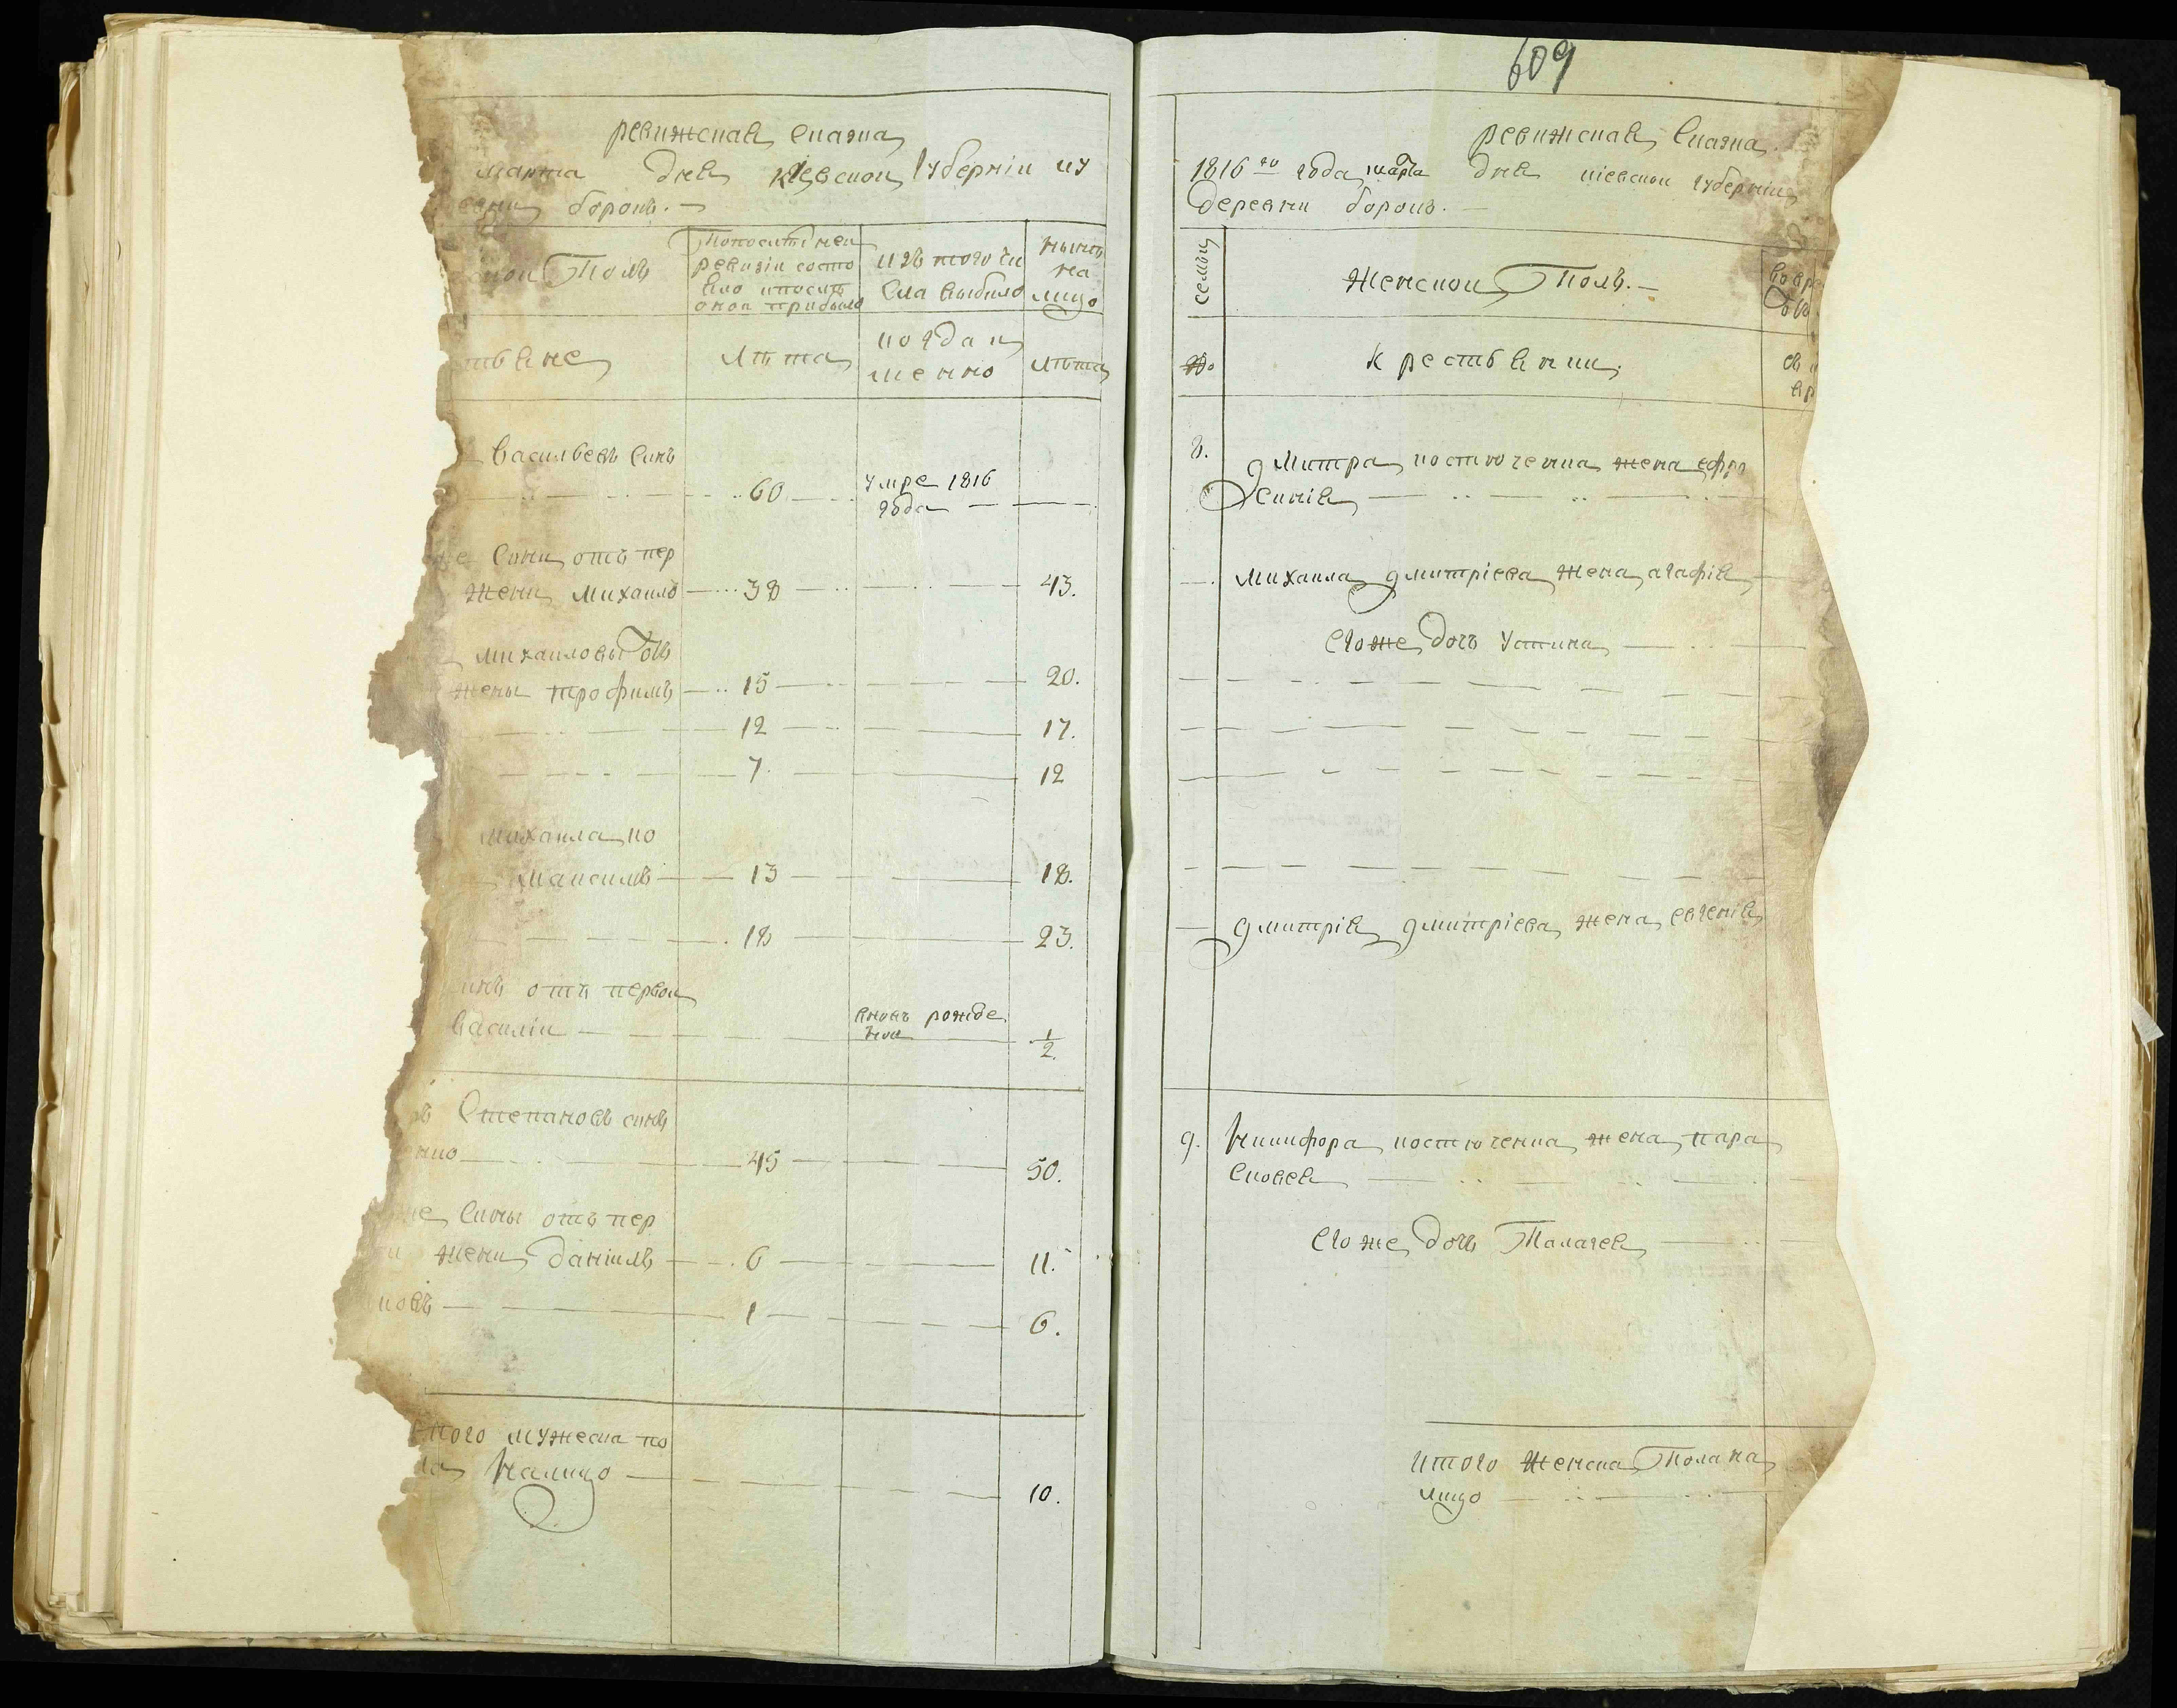 ревижская сказка
марта дня кіевской губерніи ку
борокъ. —
Полъ
По последней
ревизіи состо
яло и после
оной прибыло
изъ того чи
сла выбыло
ныне
на
лицо
тьяне
лѣта
когда и
менно
лѣта
васильевъ синъ
60
умре 1816
года
сини отъ пер
жени михайло 38 43.
михайловы отъ
жены трофимъ 15 20.
12 17.
7. 12
михаила по
максимъ 13 18.
18 23.
отъ первой
василій
вновь рожде
ной
1/2.
Степановъ синъ
нко 45 50.
же сины отъ пер
жени даніилъ 6 11.
ковъ 1 6.
итого мужеска по
ла налицо 10.
609
ревижская сказка.
1816 го года марта дня кіевской губерніи
деревни борокъ.
семьи
Женской Полъ. —
№.
крестьянки
8. дмитра костюченка жена ефро
синія
михайла дмитріева жена агафія
егоже дочъ устина
дмитрія дмитріева жена евгенія
9. Никифора костюченка жена пара
сковея
егоже дочь Палагея
итого женска пола на
лицо